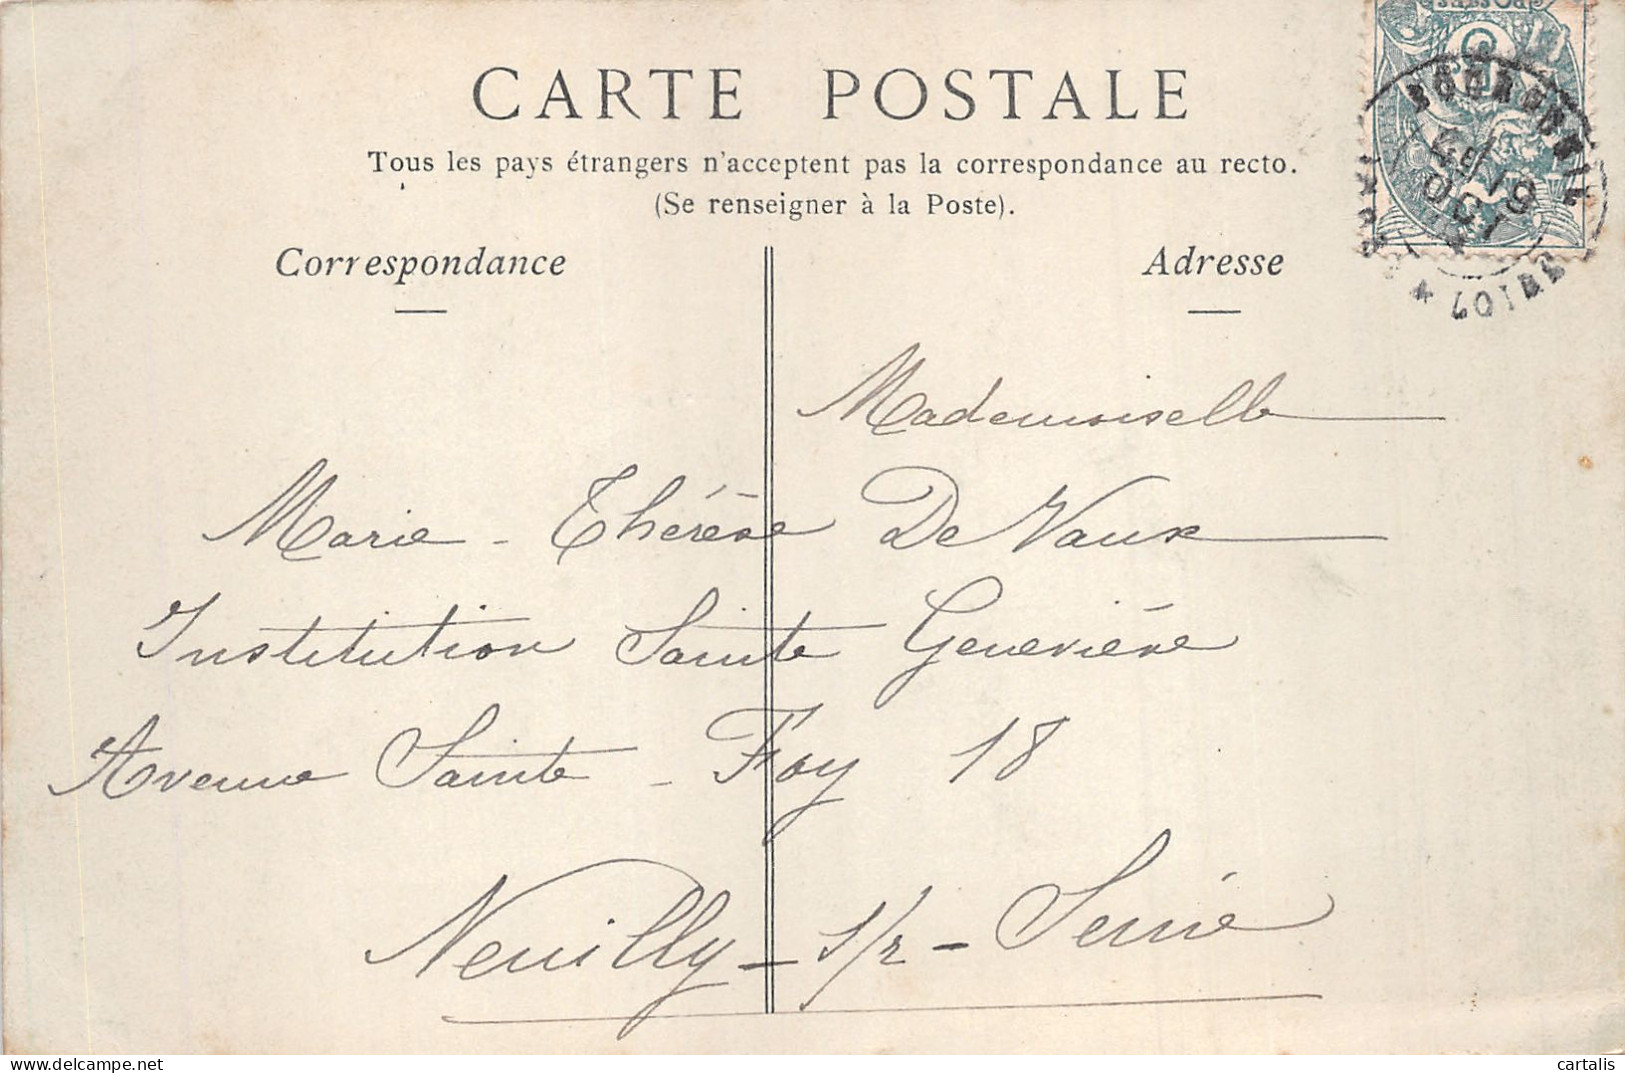 CARTE POSTALE
Tous les pays étrangers n'acceptent pas la correspondance au recto.
(Se renseigner à la Poste).
Correspondance
Adresse
Mademoiselle
Marie-Thérèse De Vaux
Institution Sainte Geneviève
Avenue Sainte-Foy 18
Neuilly-s/r-Seine
LOIRE
delcampe.net
cartalis